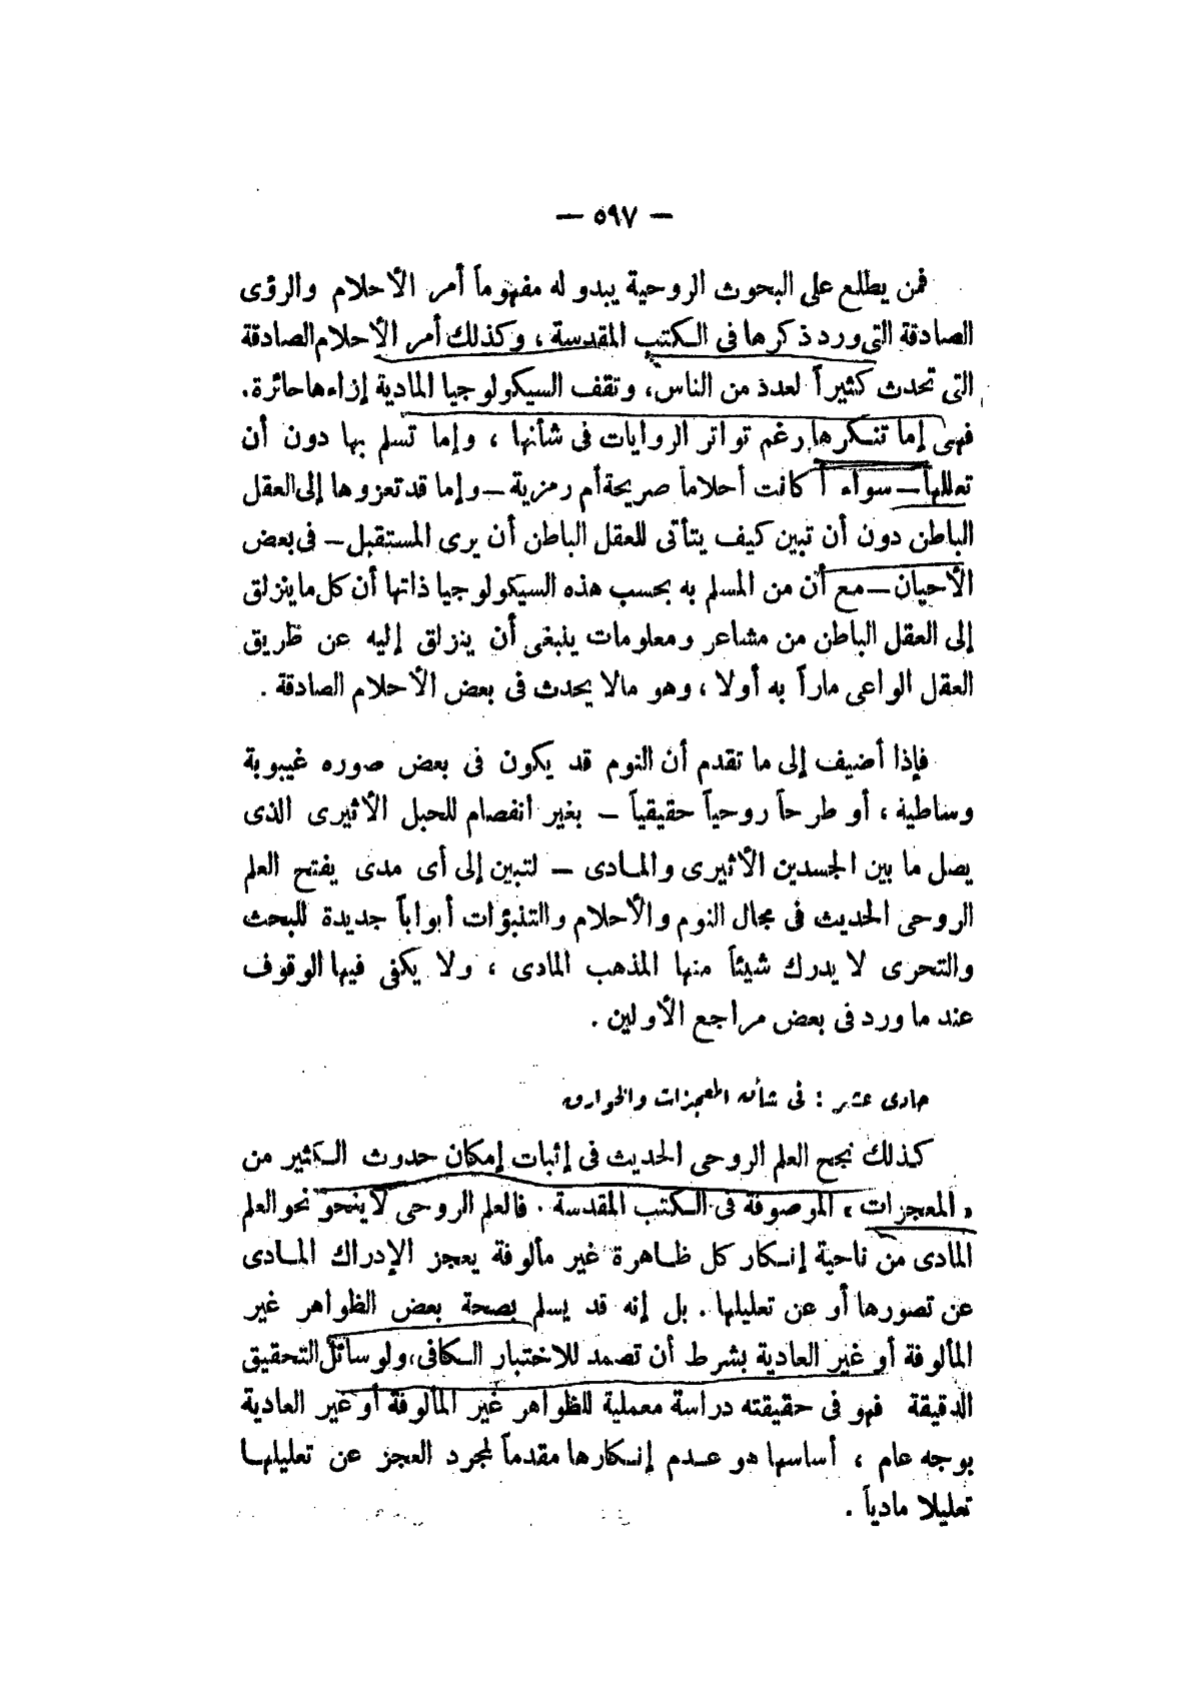 — ٥٩٧ —
فمن يطلع على البحوث الروحية يبدو له مفهوماً أمر الأحلام والرؤى
الصادقة التى ورد ذكرها فى الكتب المقدسة ، وكذلك أمر الأحلام الصادقة
التى تحدث كثيراً لعدد من الناس، وتقف السيكولوجيا المادية إزاءها حائرة.
فهى إما تنكرها رغم تواتر الروايات فى شأنها ، وإما تسلم بها دون أن
تعللها — سواء أكانت أحلاماً صريحة أم رمزية — وإما قد تعزوها إلى العقل
الباطن دون أن تبين كيف يتأتى للعقل الباطن أن يرى المستقبل — فى بعض
الأحيان — مع أن من المسلم به بحسب هذه السيكولوجيا ذاتها أن كل ما ينزلق
إلى العقل الباطن من مشاعر ومعلومات ينبغى أن ينزلق إليه عن طريق
العقل الواعى ماراً به أولا ، وهو مالا يحدث فى بعض الأحلام الصادقة .
فإذا أضيف إلى ما تقدم أن النوم قد يكون فى بعض صوره غيبوبة
وساطية ، أو طرحاً روحياً حقيقياً — بغير انفصام للحبل الأثيرى الذى
يصل ما بين الجسدين الأثيرى والمادى — لتبين إلى أى مدى يفتح العلم
الروحى الحديث فى مجال النوم والأحلام والتنبؤات أبواباً جديدة للبحث
والتحرى لا يدرك شيئاً منها المذهب المادى ، ولا يكفى فيها الوقوف
عند ما ورد فى بعض مراجع الأولين .
حادى عشر : فى شأن المعجزات والخوارق
كذلك نجح العلم الروحى الحديث فى إثبات إمكان حدوث الكثير من
« المعجزات » الموصوفة فى الكتب المقدسة . فالعلم الروحى لا ينحو نحو العلم
المادى من ناحية إنكار كل ظاهرة غير مألوفة يعجز الإدراك المادى
عن تصورها أو عن تعليلها . بل إنه قد يسلم بصحة بعض الظواهر غير
المألوفة أو غير العادية بشرط أن تصمد للاختبار الكافى، ولوسائل التحقيق
الدقيقة فهو فى حقيقته دراسة معملية للظواهر غير المألوفة أو غير العادية
بوجه عام ، أساسها هو عدم إنكارها مقدماً لمجرد العجز عن تعليلها
تعليلا مادياً .